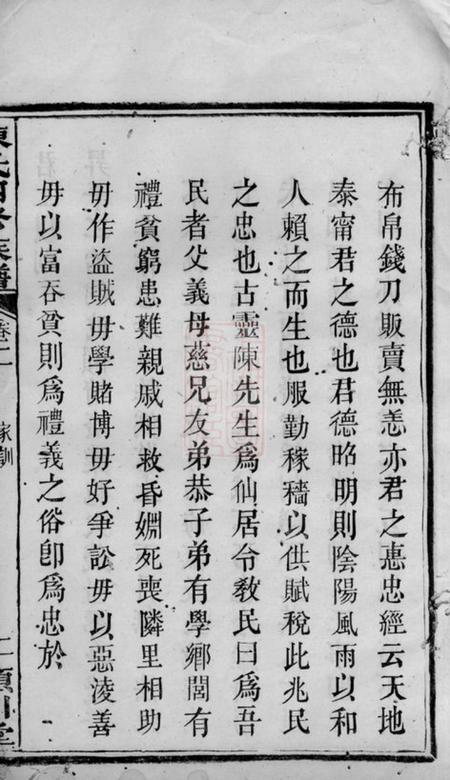 布帛錢刀販賣無恙亦君之惠忠經云天地
泰甯君之德也君德昭明則陰陽風雨以和
人賴之而生也服勤稼穡以供賦稅此兆民
之忠也古靈陳先生爲仙居令敎民曰爲吾
民者父義母慈兄友弟恭子弟有學鄉閭有
禮貧窮患難親戚相救昏婣死喪隣里相助
毋作盜賊毋學賭博毋好爭訟毋以惡淩善
毋以富吞貧則爲禮義之俗卽爲忠於
陳氏四修族譜
卷二
家訓
二